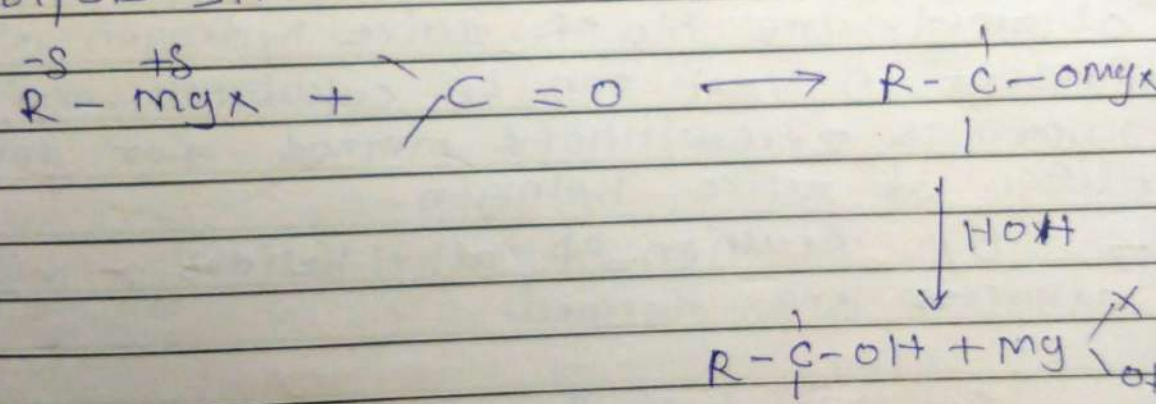 -δ +δ
R - Mgx + C = O ⟶ R - C - OMgx
HOH
R - C - OH + Mg X